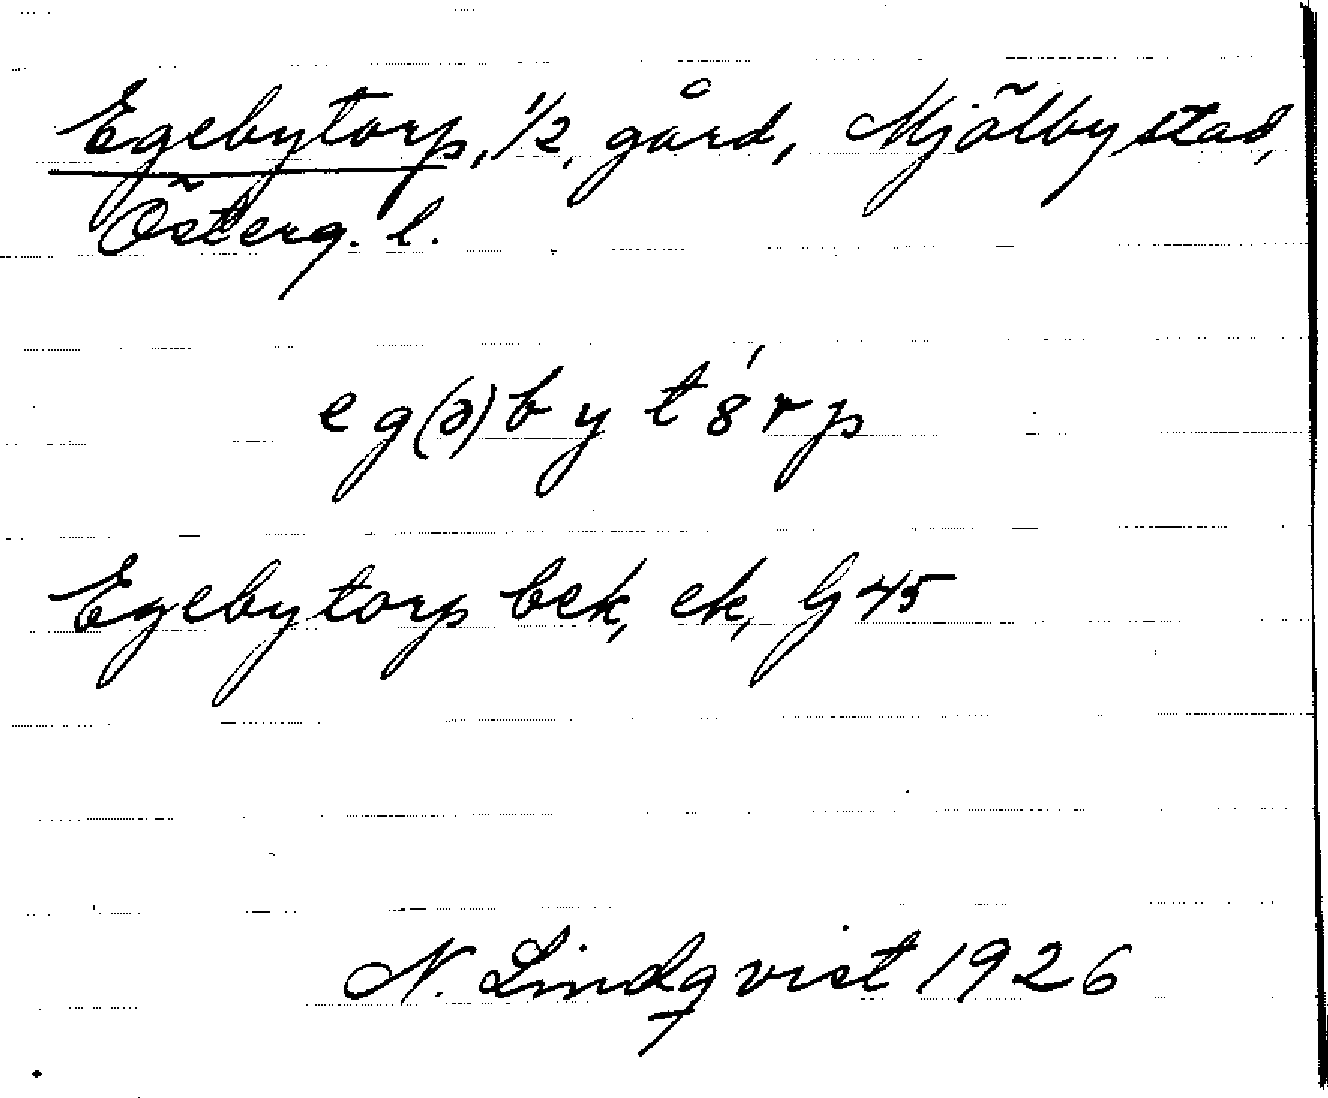 Egebytorp, 1/2, gård, Mjölby stad,
Österg. l.
eg(ə)by t8́rp
Egebytorp bek, ek, G45
N. Lindqvist 1926